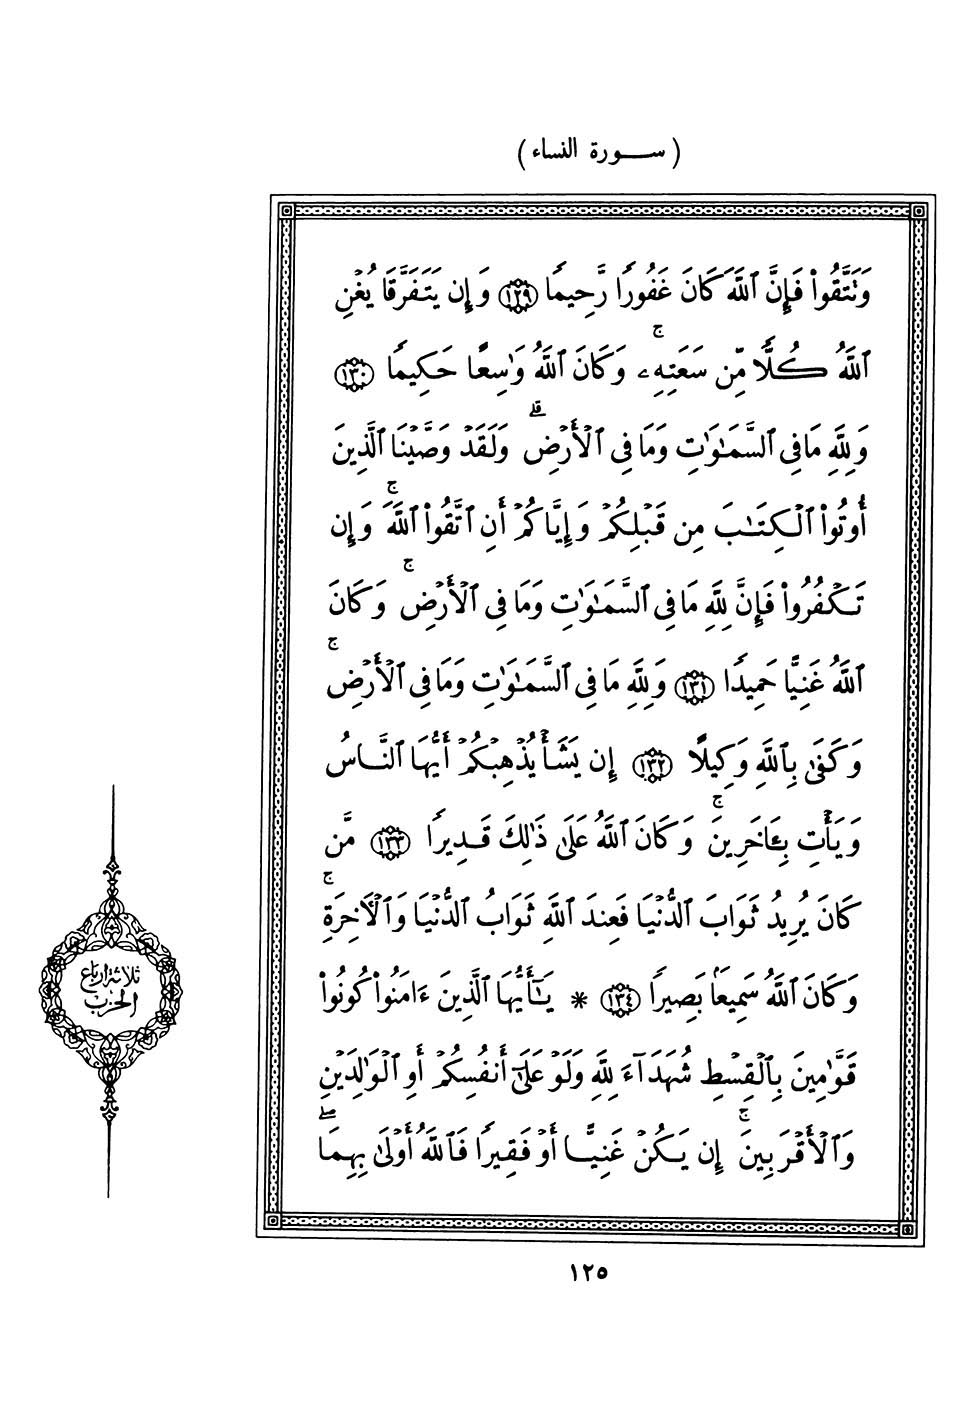 ( ســورة النساء )
وَتَتَّقُوا۟ فَإِنَّ ٱللَّهَ كَانَ غَفُورًا رَّحِيمًا ١٢٩ وَإِن يَتَفَرَّقَا يُغْنِ
ٱللَّهُ كُلًّا مِّن سَعَتِهِۦ ۚ وَكَانَ ٱللَّهُ وَٰسِعًا حَكِيمًا ١٣٠
وَلِلَّهِ مَا فِى ٱلسَّمَـٰوَٰتِ وَمَا فِى ٱلْأَرْضِ ۗ وَلَقَدْ وَصَّيْنَا ٱلَّذِينَ
أُوتُوا۟ ٱلْكِتَـٰبَ مِن قَبْلِكُمْ وَإِيَّاكُمْ أَنِ ٱتَّقُوا۟ ٱللَّهَ ۚ وَإِن
تَكْفُرُوا۟ فَإِنَّ لِلَّهِ مَا فِى ٱلسَّمَـٰوَٰتِ وَمَا فِى ٱلْأَرْضِ ۚ وَكَانَ
ٱللَّهُ غَنِيًّا حَمِيدًا ١٣١ وَلِلَّهِ مَا فِى ٱلسَّمَـٰوَٰتِ وَمَا فِى ٱلْأَرْضِ ۚ
وَكَفَىٰ بِٱللَّهِ وَكِيلًا ١٣٢ إِن يَشَأْ يُذْهِبْكُمْ أَيُّهَا ٱلنَّاسُ
وَيَأْتِ بِـَٔاخَرِينَ ۚ وَكَانَ ٱللَّهُ عَلَىٰ ذَٰلِكَ قَدِيرًا ١٣٣ مَّن
كَانَ يُرِيدُ ثَوَابَ ٱلدُّنْيَا فَعِندَ ٱللَّهِ ثَوَابُ ٱلدُّنْيَا وَٱلْـَٔاخِرَةِ ۚ
وَكَانَ ٱللَّهُ سَمِيعًۢا بَصِيرًا ١٣٤ * يَـٰٓأَيُّهَا ٱلَّذِينَ ءَامَنُوا۟ كُونُوا۟
قَوَّٰمِينَ بِٱلْقِسْطِ شُهَدَآءَ لِلَّهِ وَلَوْ عَلَىٰٓ أَنفُسِكُمْ أَوِ ٱلْوَٰلِدَيْنِ
وَٱلْأَقْرَبِينَ ۚ إِن يَكُنْ غَنِيًّا أَوْ فَقِيرًا فَٱللَّهُ أَوْلَىٰ بِهِمَا ۖ
ثلاثة ارباع
الحزب
١٢٥